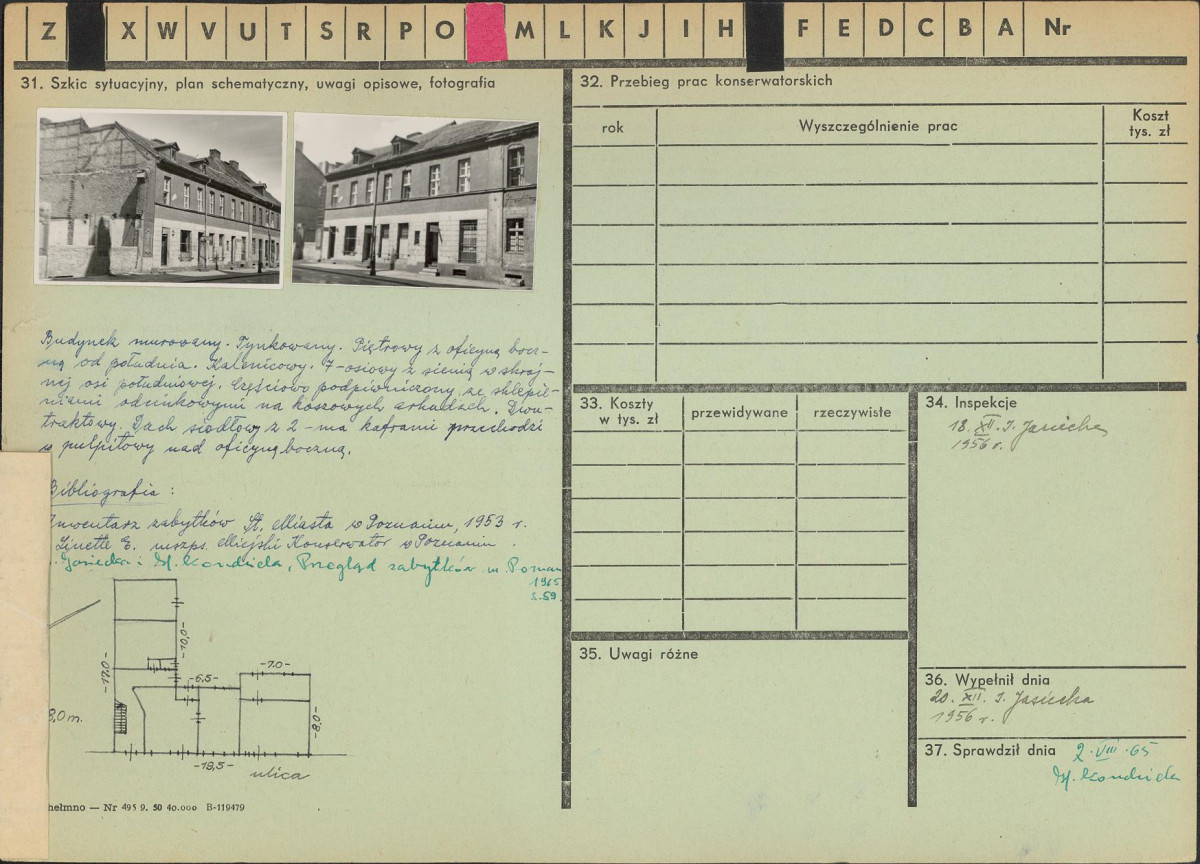 Z X W V U T S R P O M L K J I H F E D C B A Nr
31. Szkic sytuacyjny, plan schematyczny, uwagi opisowe, fotografia
Budynek murowany. Tynkowany. Piętrowy z oficyną bocz-
ną od południa. Kalenicowy. 7-osiowy z sienią w skraj-
nej osi południowej. Częściowo podpiwniczony, ze sklepie-
niami odcinkowymi na koszowych arkadach. Dwu-
traktowy. Dach siodłowy z 2-ma kaframi przechodzi
w pulpitowy nad oficyną boczną.
Bibliografia:
Inwentarz zabytków St. Miasta w Poznaniu, 1953 r.
Linette E. mszps. Miejski Konserwator w Poznaniu.
Jasiecka i M. Kondziela, Przegląd zabytków m. Poznan
1965
s.59.
-10,0-
-17,0-
-6,5-
-7,0-
-8,0-
8,0 m.
-19,5-
ulica
hełmno — Nr 495 9. 50 40.000 B-119479
32. Przebieg prac konserwatorskich
rok
Wyszczególnienie prac
Koszt
tys. zł
33. Koszty
w tys. zł
przewidywane
rzeczywiste
34. Inspekcje
18. XII. I. Jasiecka
1956 r.
35. Uwagi różne
36. Wypełnił dnia
20. XII. I. Jasiecka
1956 r.
37. Sprawdził dnia 2·VIII·65
M. Kondziela